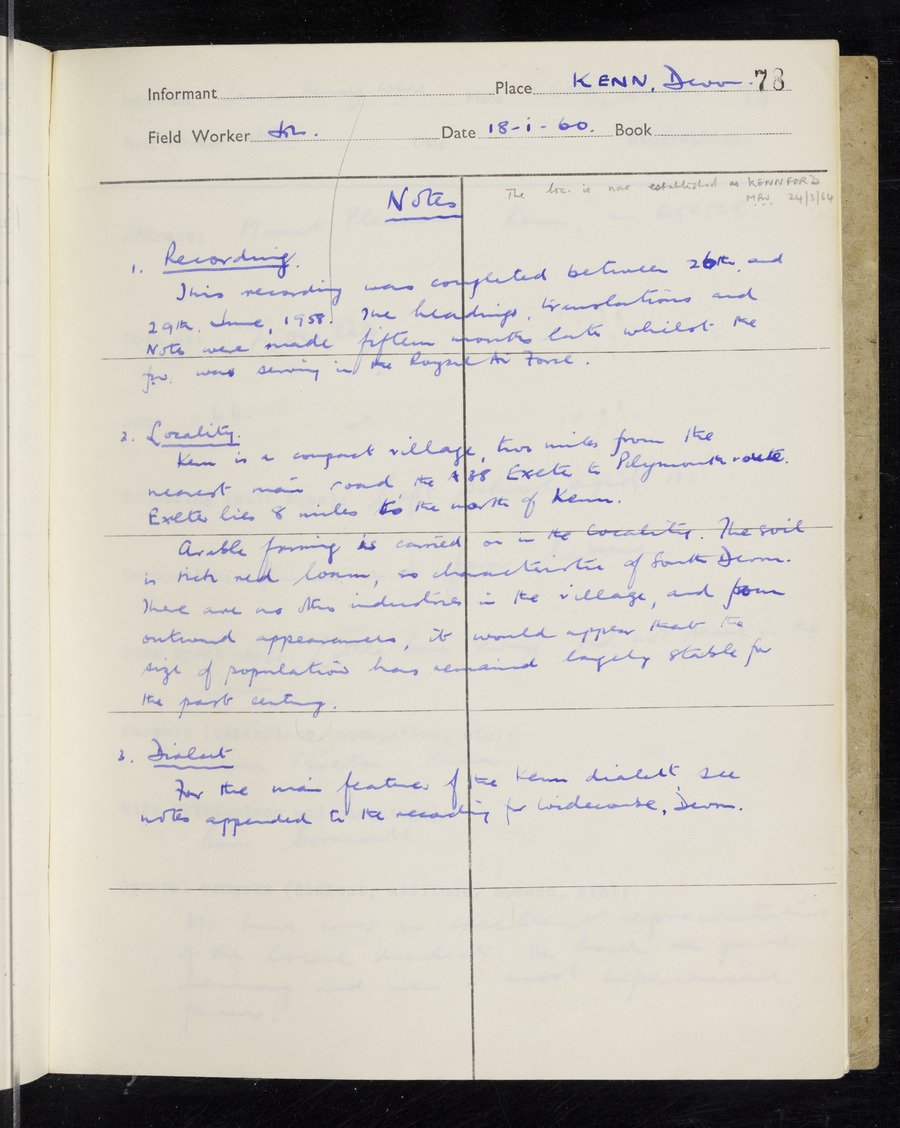 Informant Place KENN, Devon. 78
Field Worker Date 18-i-60. Book
The loc. is now established as KENNFORD
24/3/64
Notes
1. Recording.
This recording was completed between 26th. and
29th. June, 1958. The headings, translations and
Notes were made fifteen months late whilst the
fw. was serving in the Royal Air Force.
2. Locality.
Kenn is a compact village, two miles from the
nearest main road, the A38 Exeter to Plymouth route.
Exeter lies 8 miles to the north of Kenn.
Arable farming is carried on in the locality. The soil
is rich red loam, so characteristic of South Devon.
There are no other industries in the village, and from
outward appearances, it would appear that the
size of population has remained largely stable for
the past century.
3. Dialect
For the main features of the Kenn dialect, see
notes appended to the recording for Widecombe, Devon.